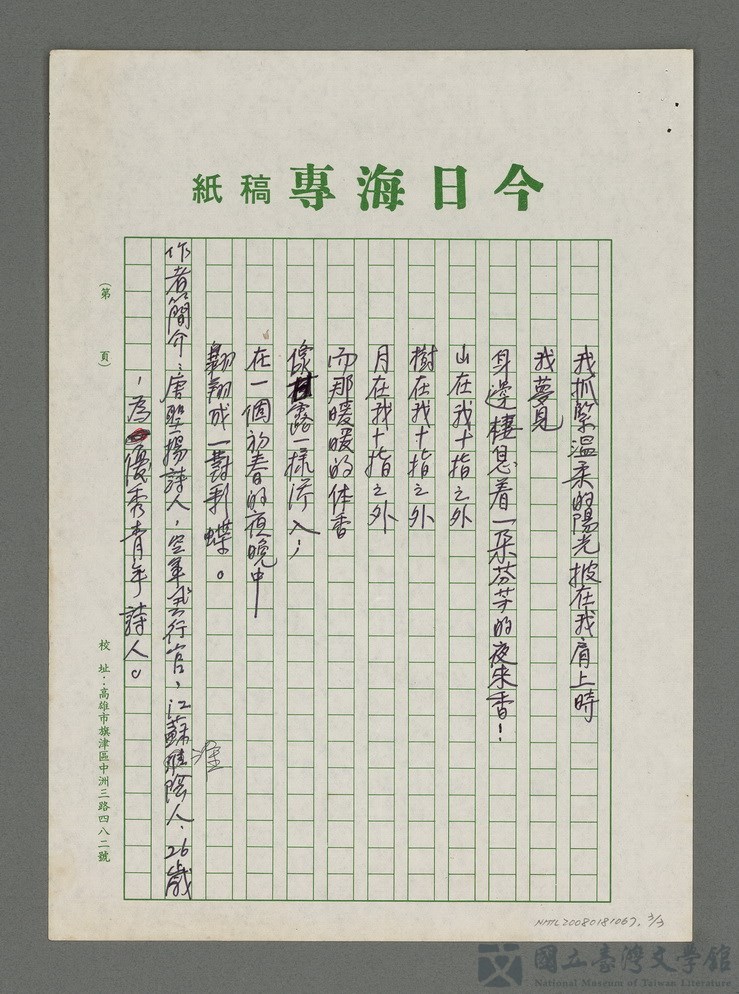 今日海專稿紙
我抓緊溫柔的陽光披在我肩上時
我夢見
身邊棲息着一朵芬芳的夜來香！
山在我十指之外
樹在我十指之外
月在我十指之外
而那暖暖的体香
像甘露一樣滲入，
在一個初春的夜晚中
翱翔成一對彩蝶。
作者簡介：唐聖揚詩人，空軍飛行官，江蘇淮陰人，26歲
，為優秀青年詩人。
淮
（第　頁）
校址：高雄市旗津區中洲三路四八二號
NMTL20080181067, 3/3
國立臺灣文學館
National Museum of Taiwan Literature